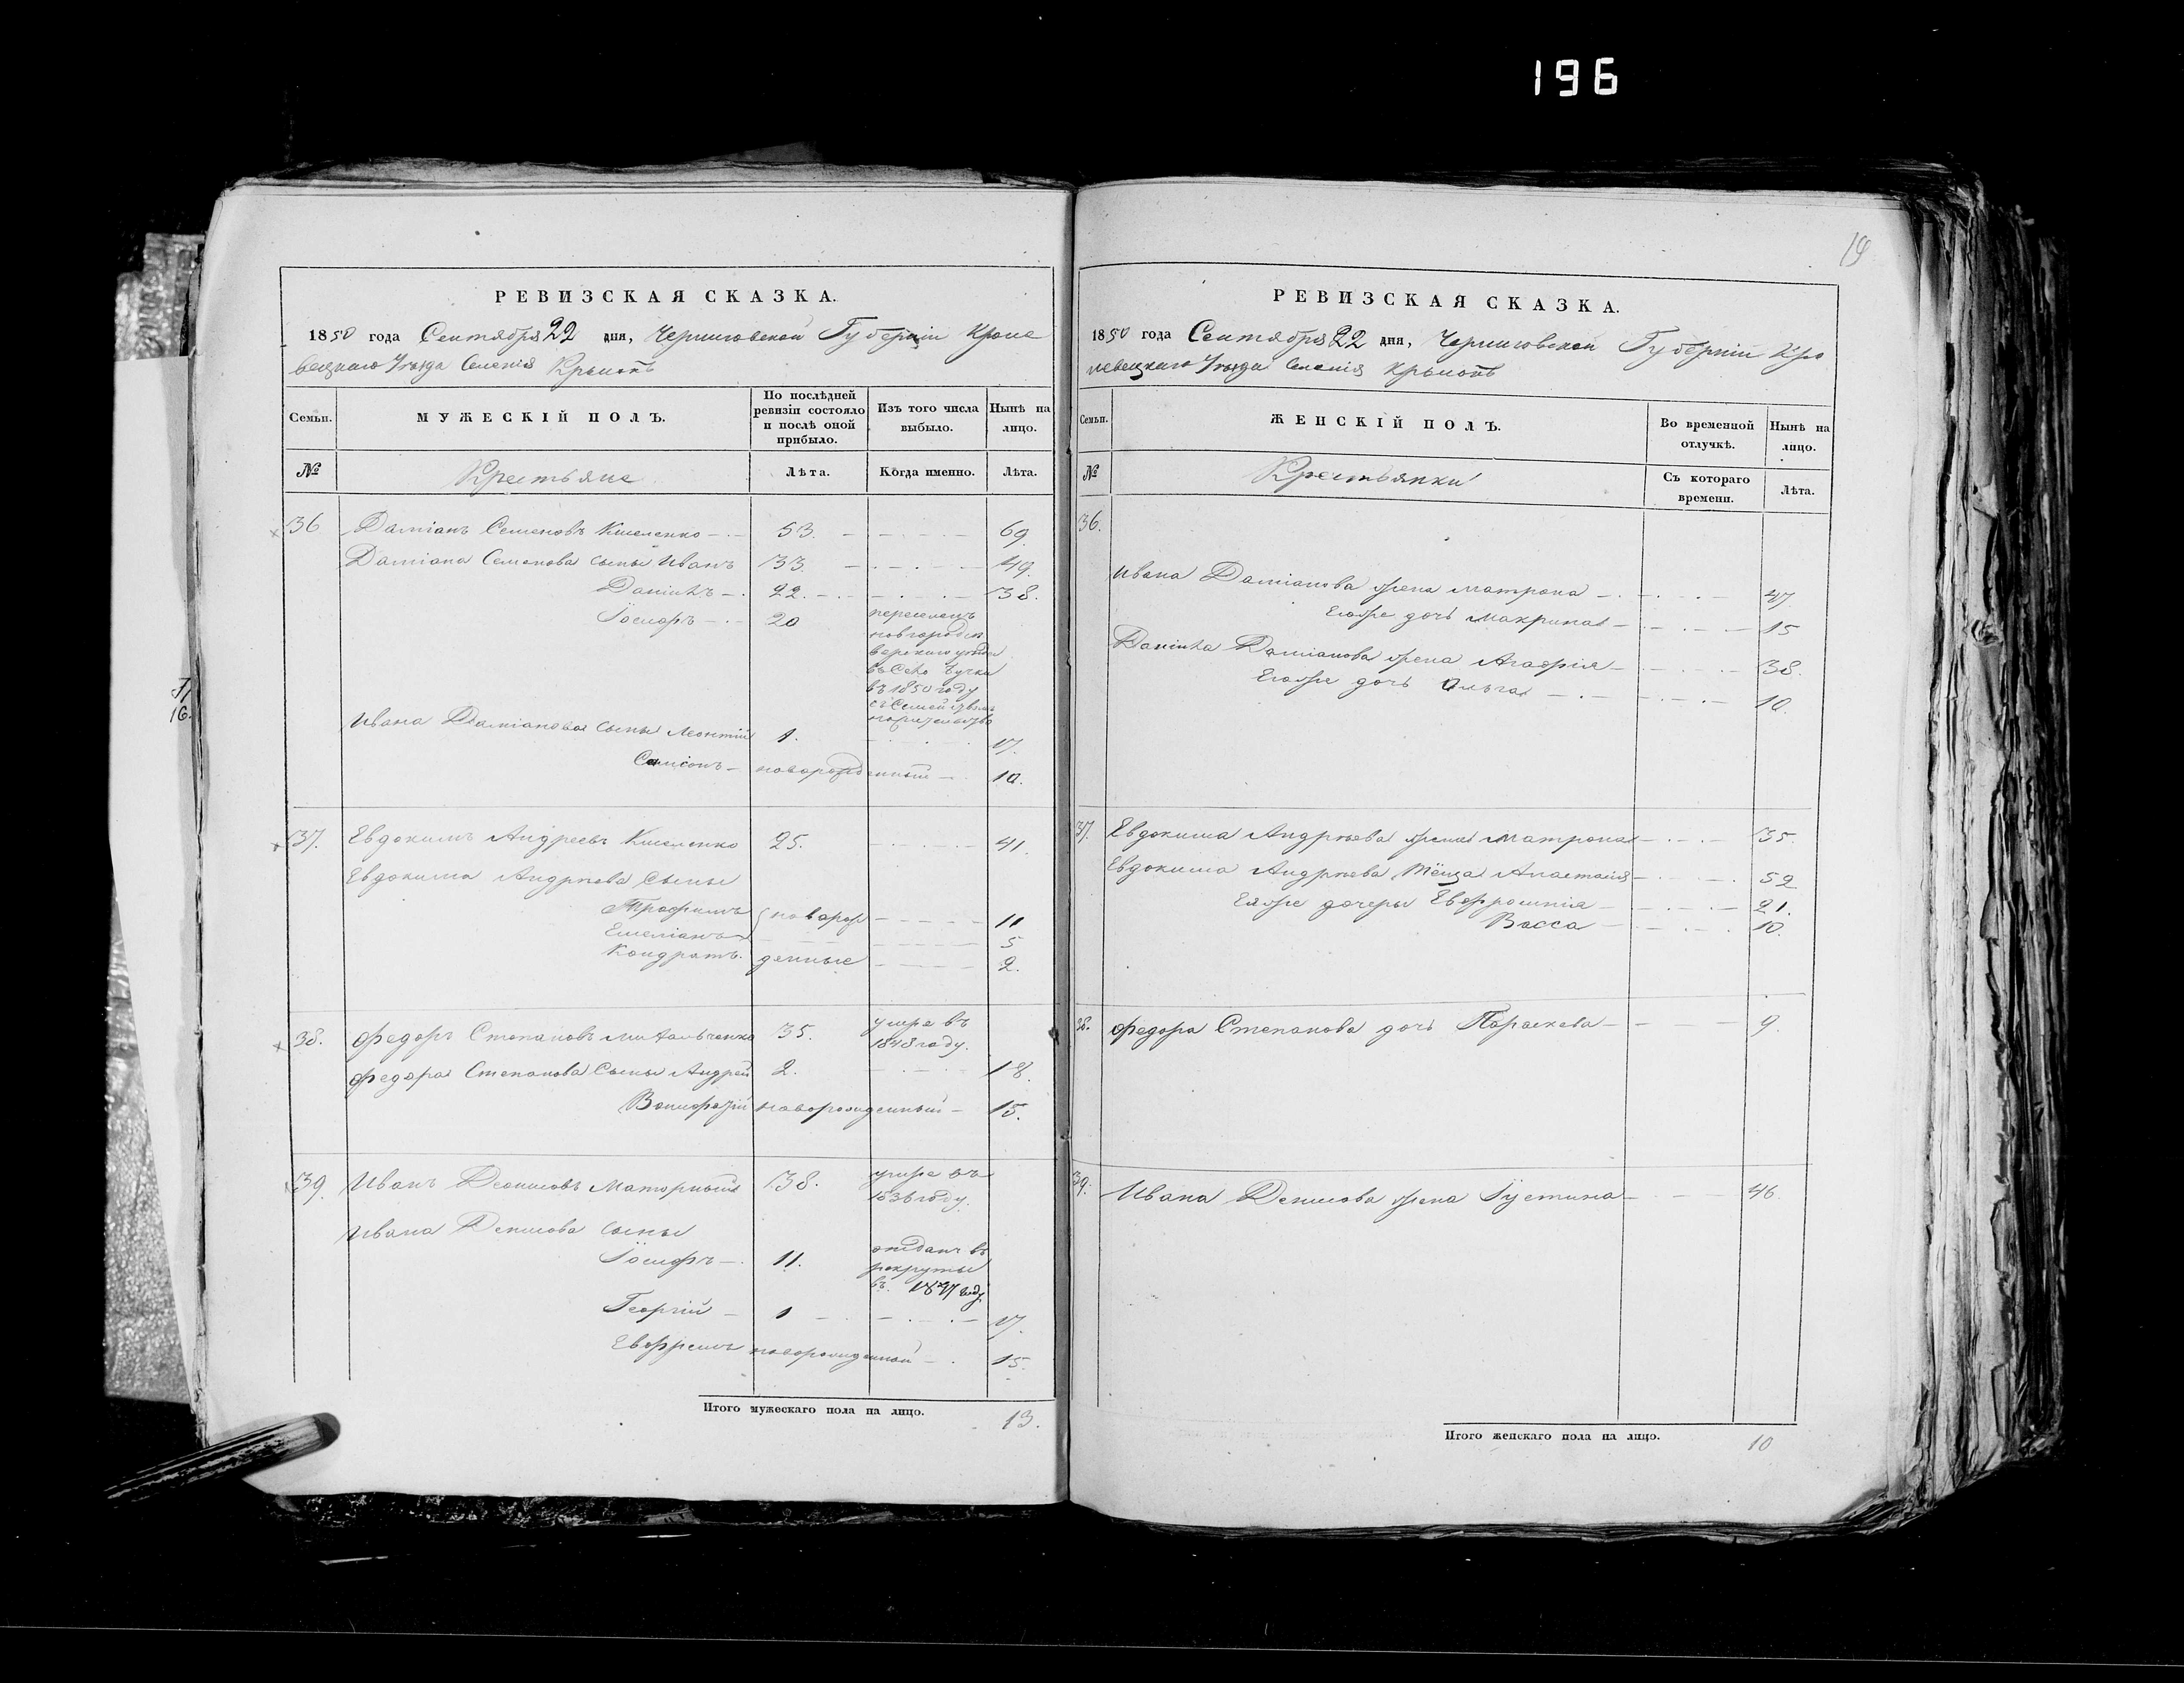 196
19
РЕВИЗСКАЯ СКАЗКА.
1850 года Сентября 22 дня, Черниговской Губерніи Кроле
вецкаго Уѣзда Селенія
Семьи. МУЖЕСКІЙ ПОЛЪ. По послѣдней ревизіи состояло и послѣ оной прибыло. Изъ того числа выбыло. Нынѣ на лицо.
№ Крестьяне Лѣта. Когда именно. Лѣта.
36 Даміанъ Семеновъ 53. 69
Даміана Семенова сыны Иванъ 33. 49
Даніилъ 22. 38.
Іосифъ 20 переселенъ
новгородсѣ
верскаго уѣзда
въ Село
въ 1850 году
съ Семействомъ
на жительство
Ивана Даміанова сыны Леонтій 1. 17.
Самсонъ новорожденный 10.
37. Евдокимъ Андреевъ 25. 41.
Евдокима Андрѣева Сыны
Трофимъ новорож 11
Емеліанъ 5
Кондратъ денные 2.
38. Федоръ Степановъ 35. умре въ
1848 году.
Федора Степанова Сыны Андрей 2. 18.
Вонифатій новорожденный 15.
39. Иванъ Денисовъ Маторный 38. умре въ
1836 году.
Ивана Денисова сыны
Іосифъ 11. отданъ въ
рекруты
въ 1847 году.
Георгій 1 17.
Евфремъ новорожденной 15.
Итого мужескаго пола на лицо. 13.
РЕВИЗСКАЯ СКАЗКА.
1850 года Сентября 22 дня, Черниговской Губерніи Кро
левецкаго Уѣзда Селенія
Семьи. ЖЕНСКІЙ ПОЛЪ. Во временной отлучкѣ. Нынѣ на лицо.
№ Крестьянки Съ котораго времени. Лѣта.
36.
Ивана Даміанова жена Матрона 47
Егожѐ дочь Макрина 15
Даніила Даміанова жена Агафія 38.
Егоже дочь Ольга 10.
37. Евдокима Андрѣева жена Матрона 35.
Евдокима Андрѣева тёща Анастасія 52
Еяже дочеры Евфросинія 21.
Васса 10.
38. Федора Степанова дочь Параскева 9.
39. Ивана Денисова жена Іустина 46.
Итого женскаго пола на лицо. 10